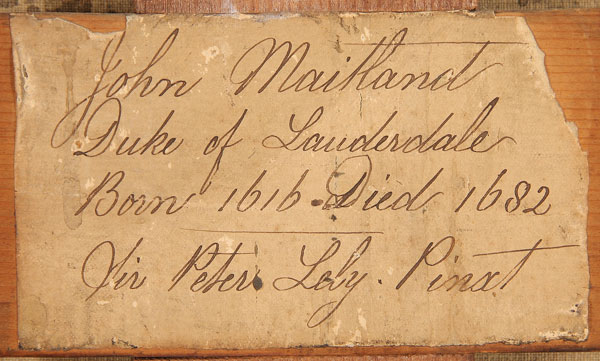 John Maitland
Duke of Lauderdale
Born 1616. Died 1682
Sir Peter Lely. Pinxt